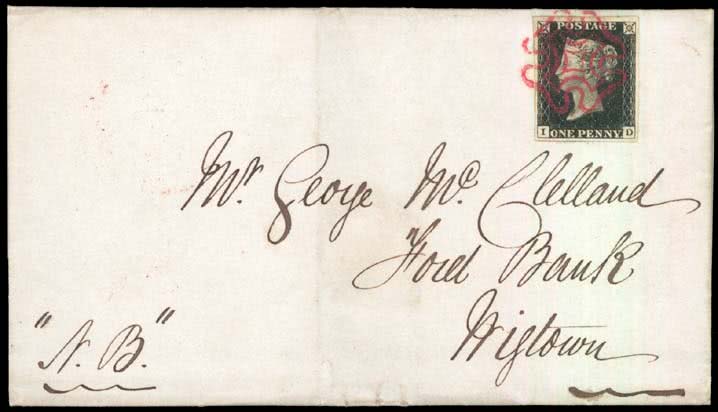 POSTAGE
I D
ONE PENNY
Mr. George Mc. Clelland
Ford Bank
Wigtown
"N. B."